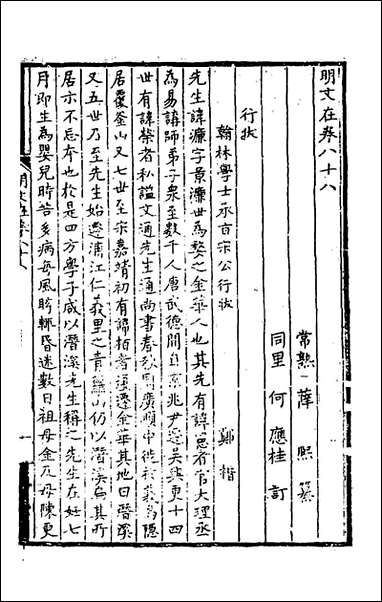 明文在卷八十八
常熟 薛熙 纂
同里 何應桂 訂
行狀
翰林學士承旨宋公行狀 鄭楷
先生諱濂字景濂世為婺之金華人也其先有諱憲者官大理丞
為易講師弟子衆至數千人唐武德間自京兆尹遷吳興更十四
世有諱榮者私謚文通先生通尚書春秋周廣順中徙於義烏隱
居覆釜山又七世至宋嘉靖初有諱柏者復遷金華其地曰潛溪
又五世乃至先生始遷浦江仁義里之青蘿山仍以潛溪為其所
居示不忘本也於是四方學子咸以潛溪先生稱之先生在妊七
月即生為嬰兒時苦多病每風眩輒昏迷數日祖母金及母陳更
明文在卷八十八
一